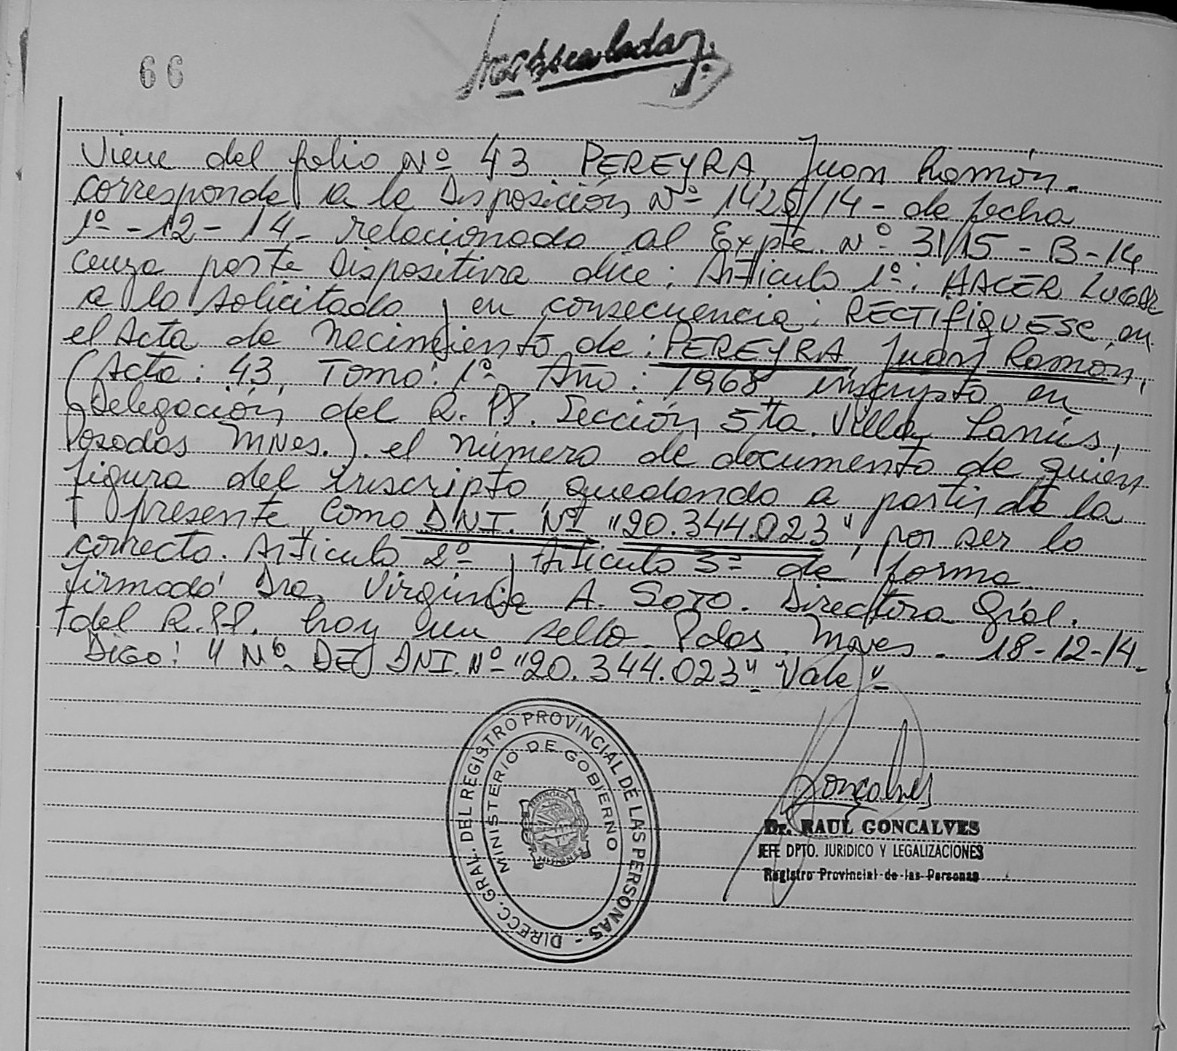 66
Viene del folio Nº 43 PEREYRA, Juan Ramón.
corresponde a la Disposición Nº 1425/14 - de fecha
1º - 12 - 14 - relacionado al Expte. Nº 3115 - B - 14
cuya parte Dispositiva dice: Artículo 1º: HACER LUGAR
a lo solicitado y en consecuencia: RECTIFIQUESE, en
el Acta de Nacimiento de: PEREYRA, Juan Ramón,
(Acta: 43, Tomo: 1º, Año: 1968 inscripto en
Delegación del R. P. Sección 5ta. Villa Lanús,
Posadas Mnes.). el número de documento de quien
figura del inscripto, quedando a partir de la
presente, como D.N.I. Nº "20.344.023", por ser lo
correcto. Artículo 2º y Artículo 3º de forma
firmado: Dra. Virginia A. Soto. Directora Gral.
del R.P. hay un sello. Pdas. Mnes. - 18-12-14.
Digo: "Nº DE DNI. Nº "20.344.023" Vale"
DIRECC. GRAL. DEL REGISTRO PROVINCIAL DE LAS PERSONAS -
MINISTERIO DE GOBIERNO
Goncalves
Dr. RAUL GONCALVES
JEFE DPTO. JURIDICO Y LEGALIZACIONES
Registro Provincial de las Personas